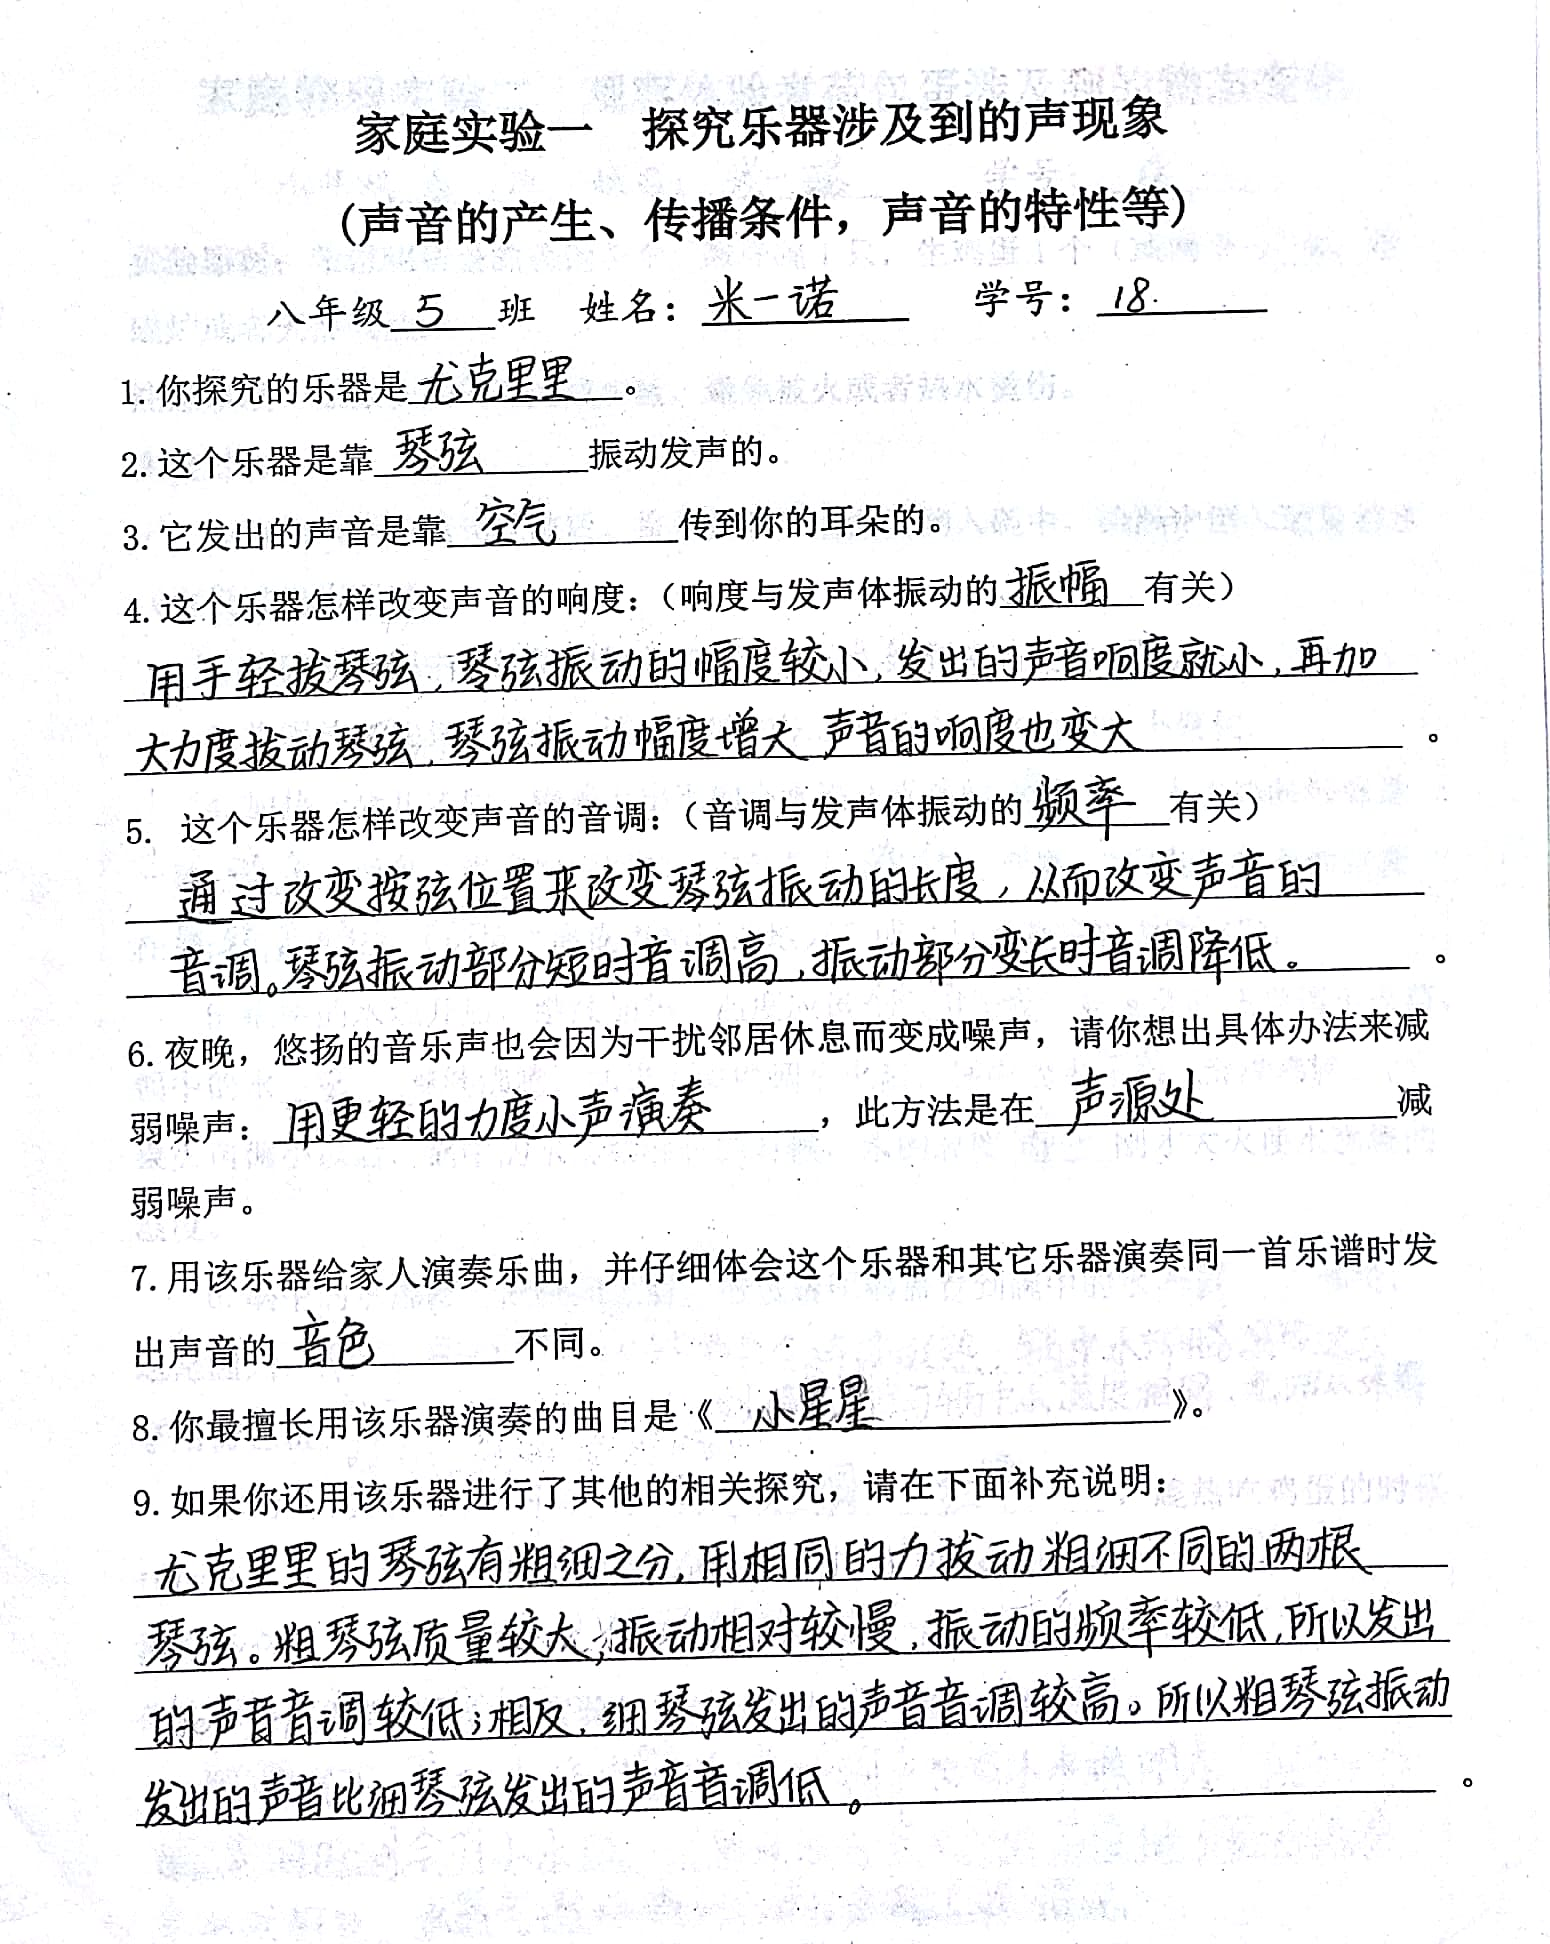 家庭实验一 探究乐器涉及到的声现象
(声音的产生、传播条件，声音的特性等)
八年级 5 班 姓名：米一诺 学号：18.
1.你探究的乐器是尤克里里。
2.这个乐器是靠 琴弦 振动发声的。
3.它发出的声音是靠 空气 传到你的耳朵的。
4.这个乐器怎样改变声音的响度：（响度与发声体振动的振幅有关）
用手轻拔琴弦，琴弦振动的幅度较小，发出的声音响度就小，再加
大力度拔动琴弦，琴弦振动幅度增大 声音的响度也变大 。
5. 这个乐器怎样改变声音的音调：（音调与发声体振动的频率有关）
通过改变按弦位置来改变琴弦振动的长度，从而改变声音的
音调。琴弦振动部分短时音调高，振动部分变长时音调降低。 。
6.夜晚，悠扬的音乐声也会因为干扰邻居休息而变成噪声，请你想出具体办法来减
弱噪声：用更轻的力度小声演奏，此方法是在 声源处 减
弱噪声。
7.用该乐器给家人演奏乐曲，并仔细体会这个乐器和其它乐器演奏同一首乐谱时发
出声音的 音色 不同。
8.你最擅长用该乐器演奏的曲目是《 小星星 》。
9.如果你还用该乐器进行了其他的相关探究，请在下面补充说明：
尤克里里的琴弦有粗细之分，用相同的力拔动粗细不同的两根
琴弦。粗琴弦质量较大，振动相对较慢，振动的频率较低，所以发出
的声音音调较低；相反，细琴弦发出的声音音调较高。所以粗琴弦振动
发出的声音比细琴弦发出的声音音调低。 。